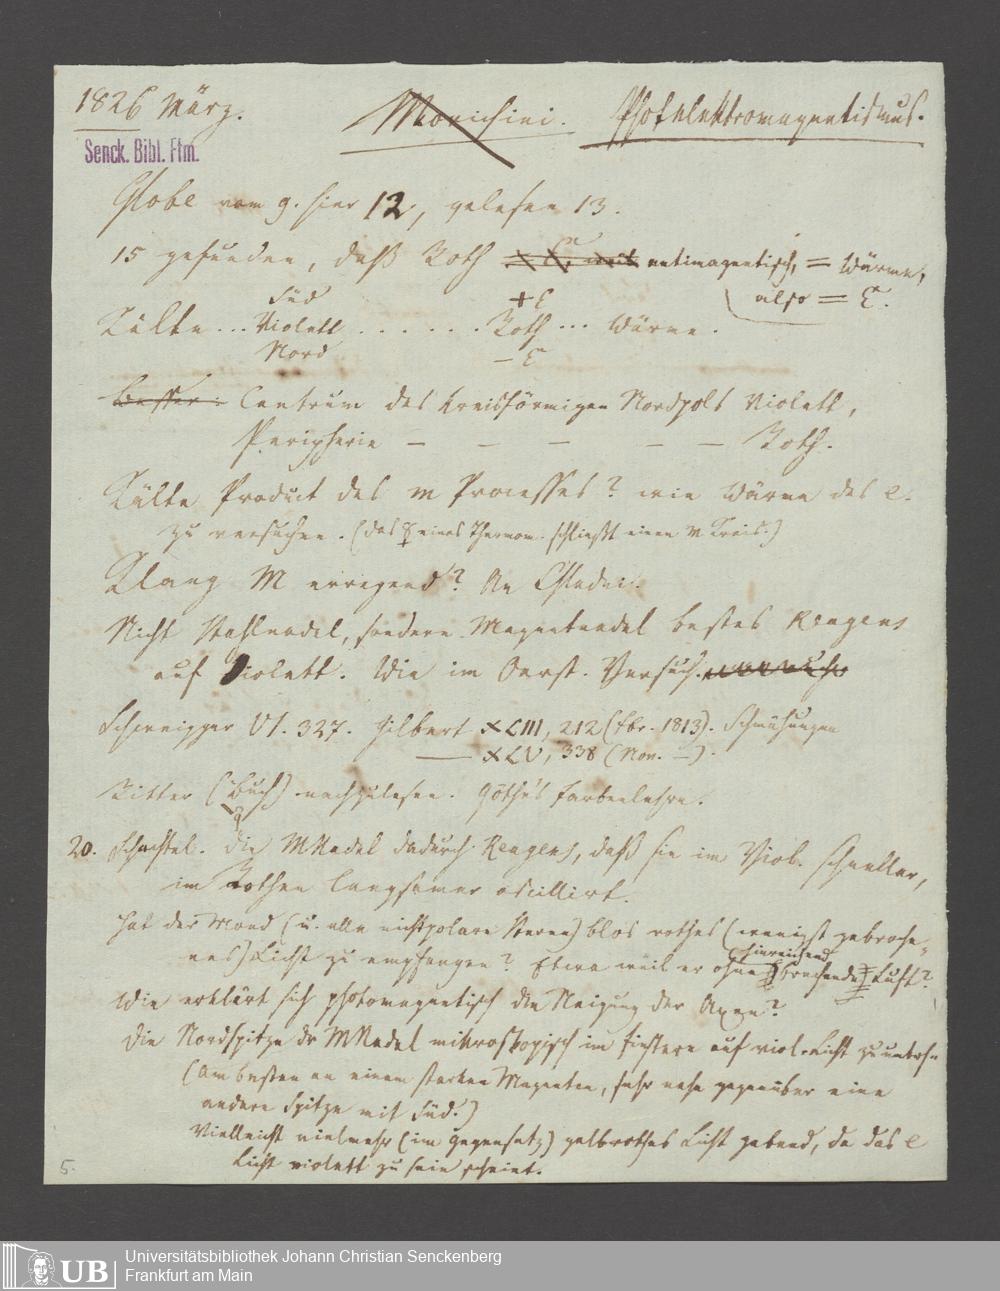 1826 März.
Morichini. Photelektromagnetismus.
Senck. Bibl. Ffm.
Globe vom 9. hier 12, gelesen 13.
15 gefunden, daß Roth antimagnetisch, = Wärme,
also = E.
Süd +E
Kälte ... Violett . . . . . . Roth ... Wärme.
Nord – E
Besser: Centrum des kreisförmigen Nordpols Violett,
Peripherie — — — — — Roth.
Kälte Product des m Processes? wie Wärme des e.
zu versuchen. (das ☿ eines Thermom. schließt einen M Kreis.)
Klang M erregend? An
Nicht Stahlnadel, sondern Magnetnadel bestes Reagens
auf Violett. Wie im Oerst. Versuch.
Schweigger VI. 327. Gilbert XLIII, 212 (Fbr. 1813). Schmähungen
— XLV, 338 (Nov. –).
Ritter (Buch) nachzulesen. Göthe's Farbenlehre.
20. Schachtel. Die MNadel dadurch Reagens, daß sie im Viol. schneller,
im Rothen langsamer oscillirt.
Hat der Mond (u. alle nichtpolare Sterne) blos rothes (wenigst gebroche-
nes) Licht zu empfangen? Etwa weil er ohne hinreichend brechende Luft?
Wie erklärt sich photomagnetisch die Neigung der Axen?
Die Nordspitze dr MNadel mikroskopisch im Finstern auf viol. Licht zu untersn
(Am besten an einem starken Magneten, sehr nahe gegenüber eine
andere Spitze mit Süd.)
Vielleicht vielmehr (im Gegensatz) gelbrothes Licht gebend, da das e
Licht violett zu sein scheint.
5.
UB Universitätsbibliothek Johann Christian Senckenberg
Frankfurt am Main